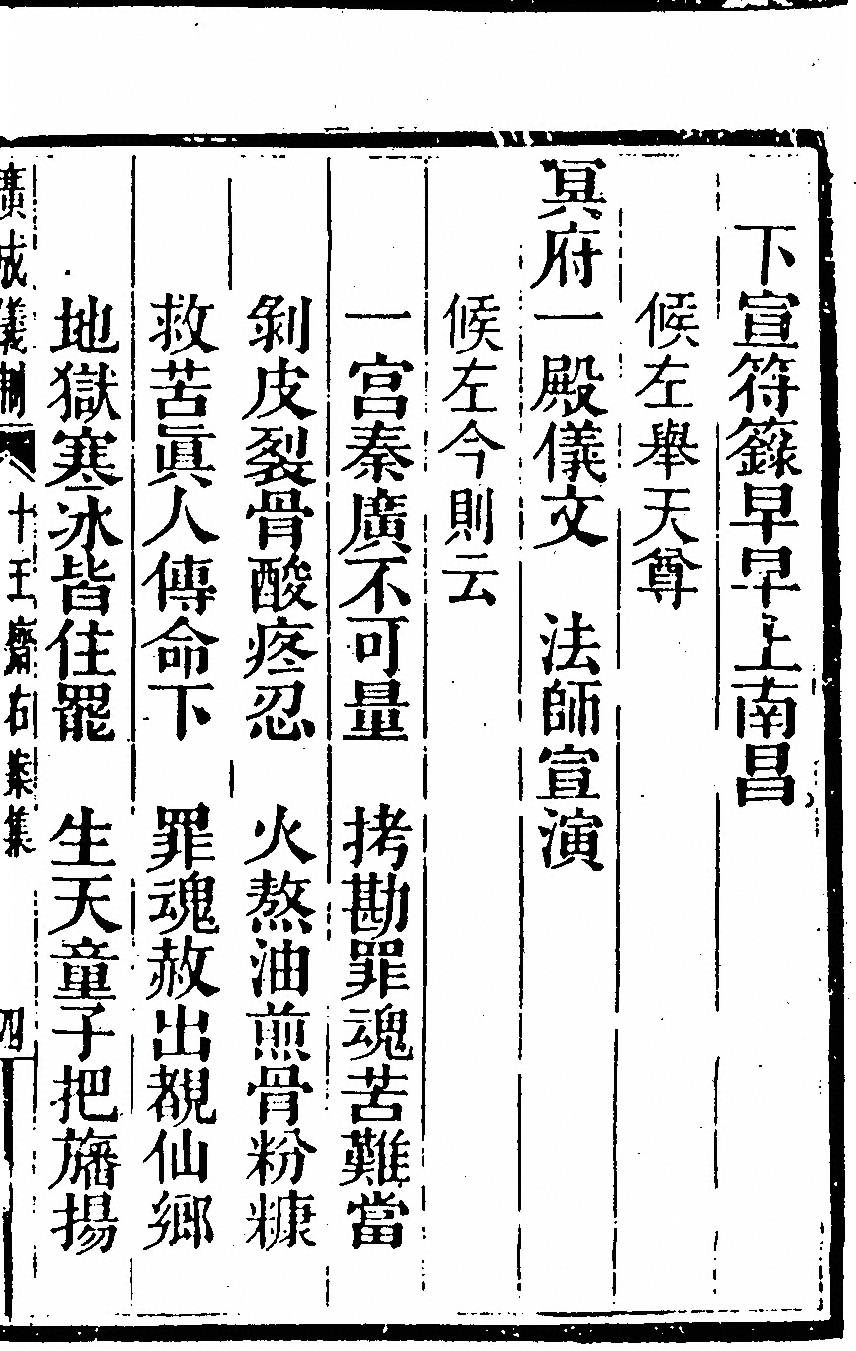 下宣符籙早早上南昌
候左舉天尊
冥府一殿儀文　法師宣演
候左今則云
一宮秦廣不可量　拷勘罪魂苦難當
剝皮裂骨酸疼忍　火熬油煎骨粉糠
救苦眞人傳命下　罪魂赦出覩仙鄉
地獄寒冰皆住罷　生天童子把旛揚
廣成儀制　十王齋右案集　四